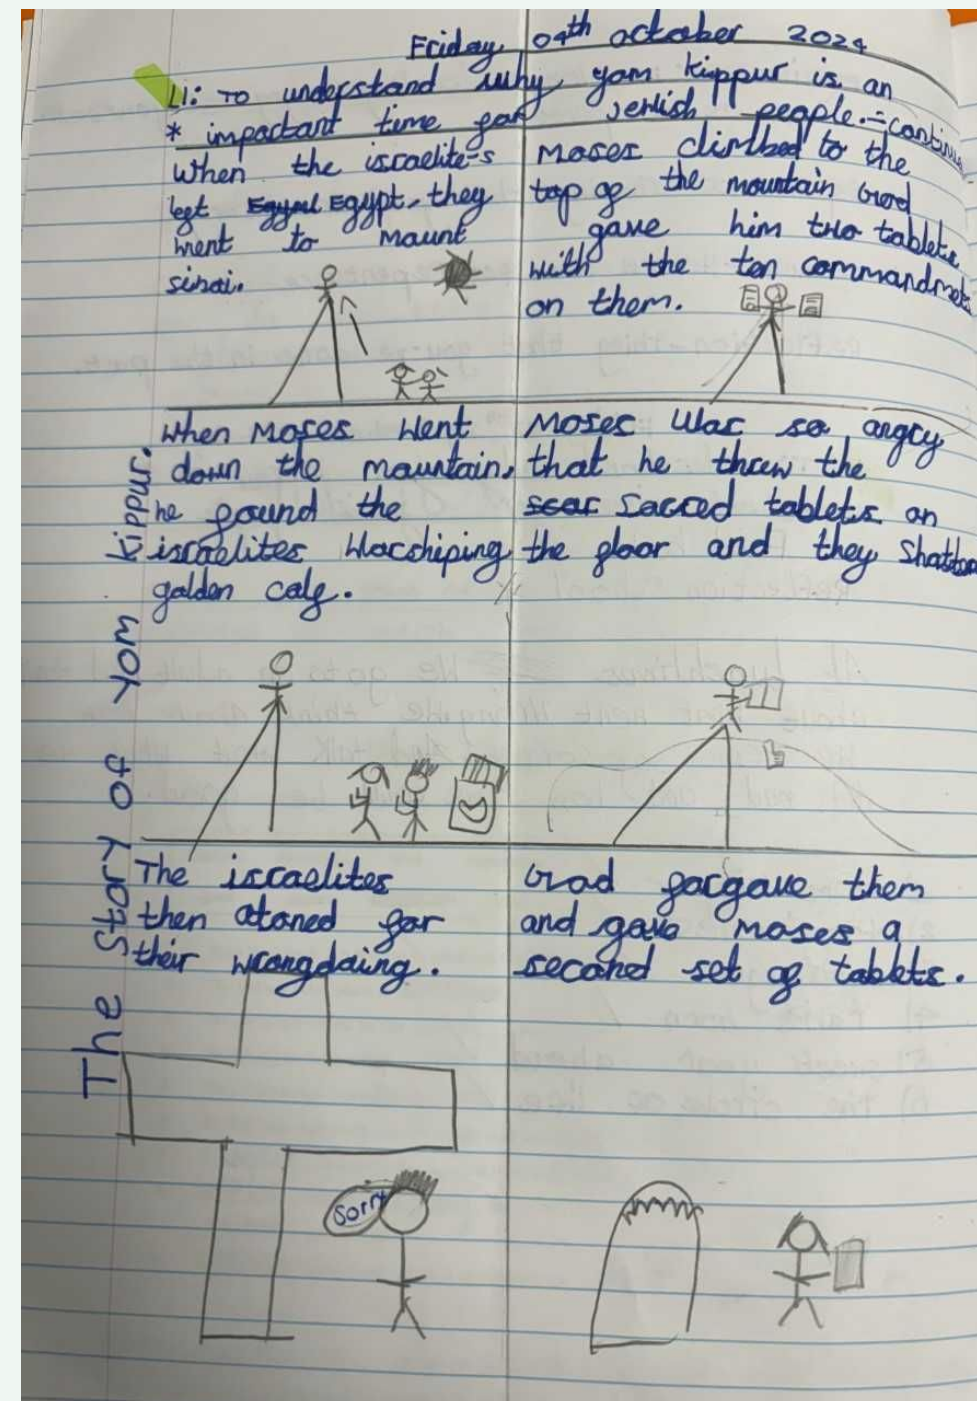 Friday 04th october 2024
LI: To understand why yom kippur is an
* important time for jewish people. - continue
When the israelite-s
left Egypt, they
went to mount
sinai.
Moses climbed to the
top of the mountain God
gave him two tablets
with the ten commandmets
on them.
When Moses went
down the mountain,
he found the
israelites worshiping
golden calf.
Moses was so angry
that he threw the
scar sacred tablets on
the floor and they shatter
The israelites
then atoned for
their wrongdoing.
God forgave them
and gave moses a
second set of tablets.
Sorry
The Story of Yom Kippur.